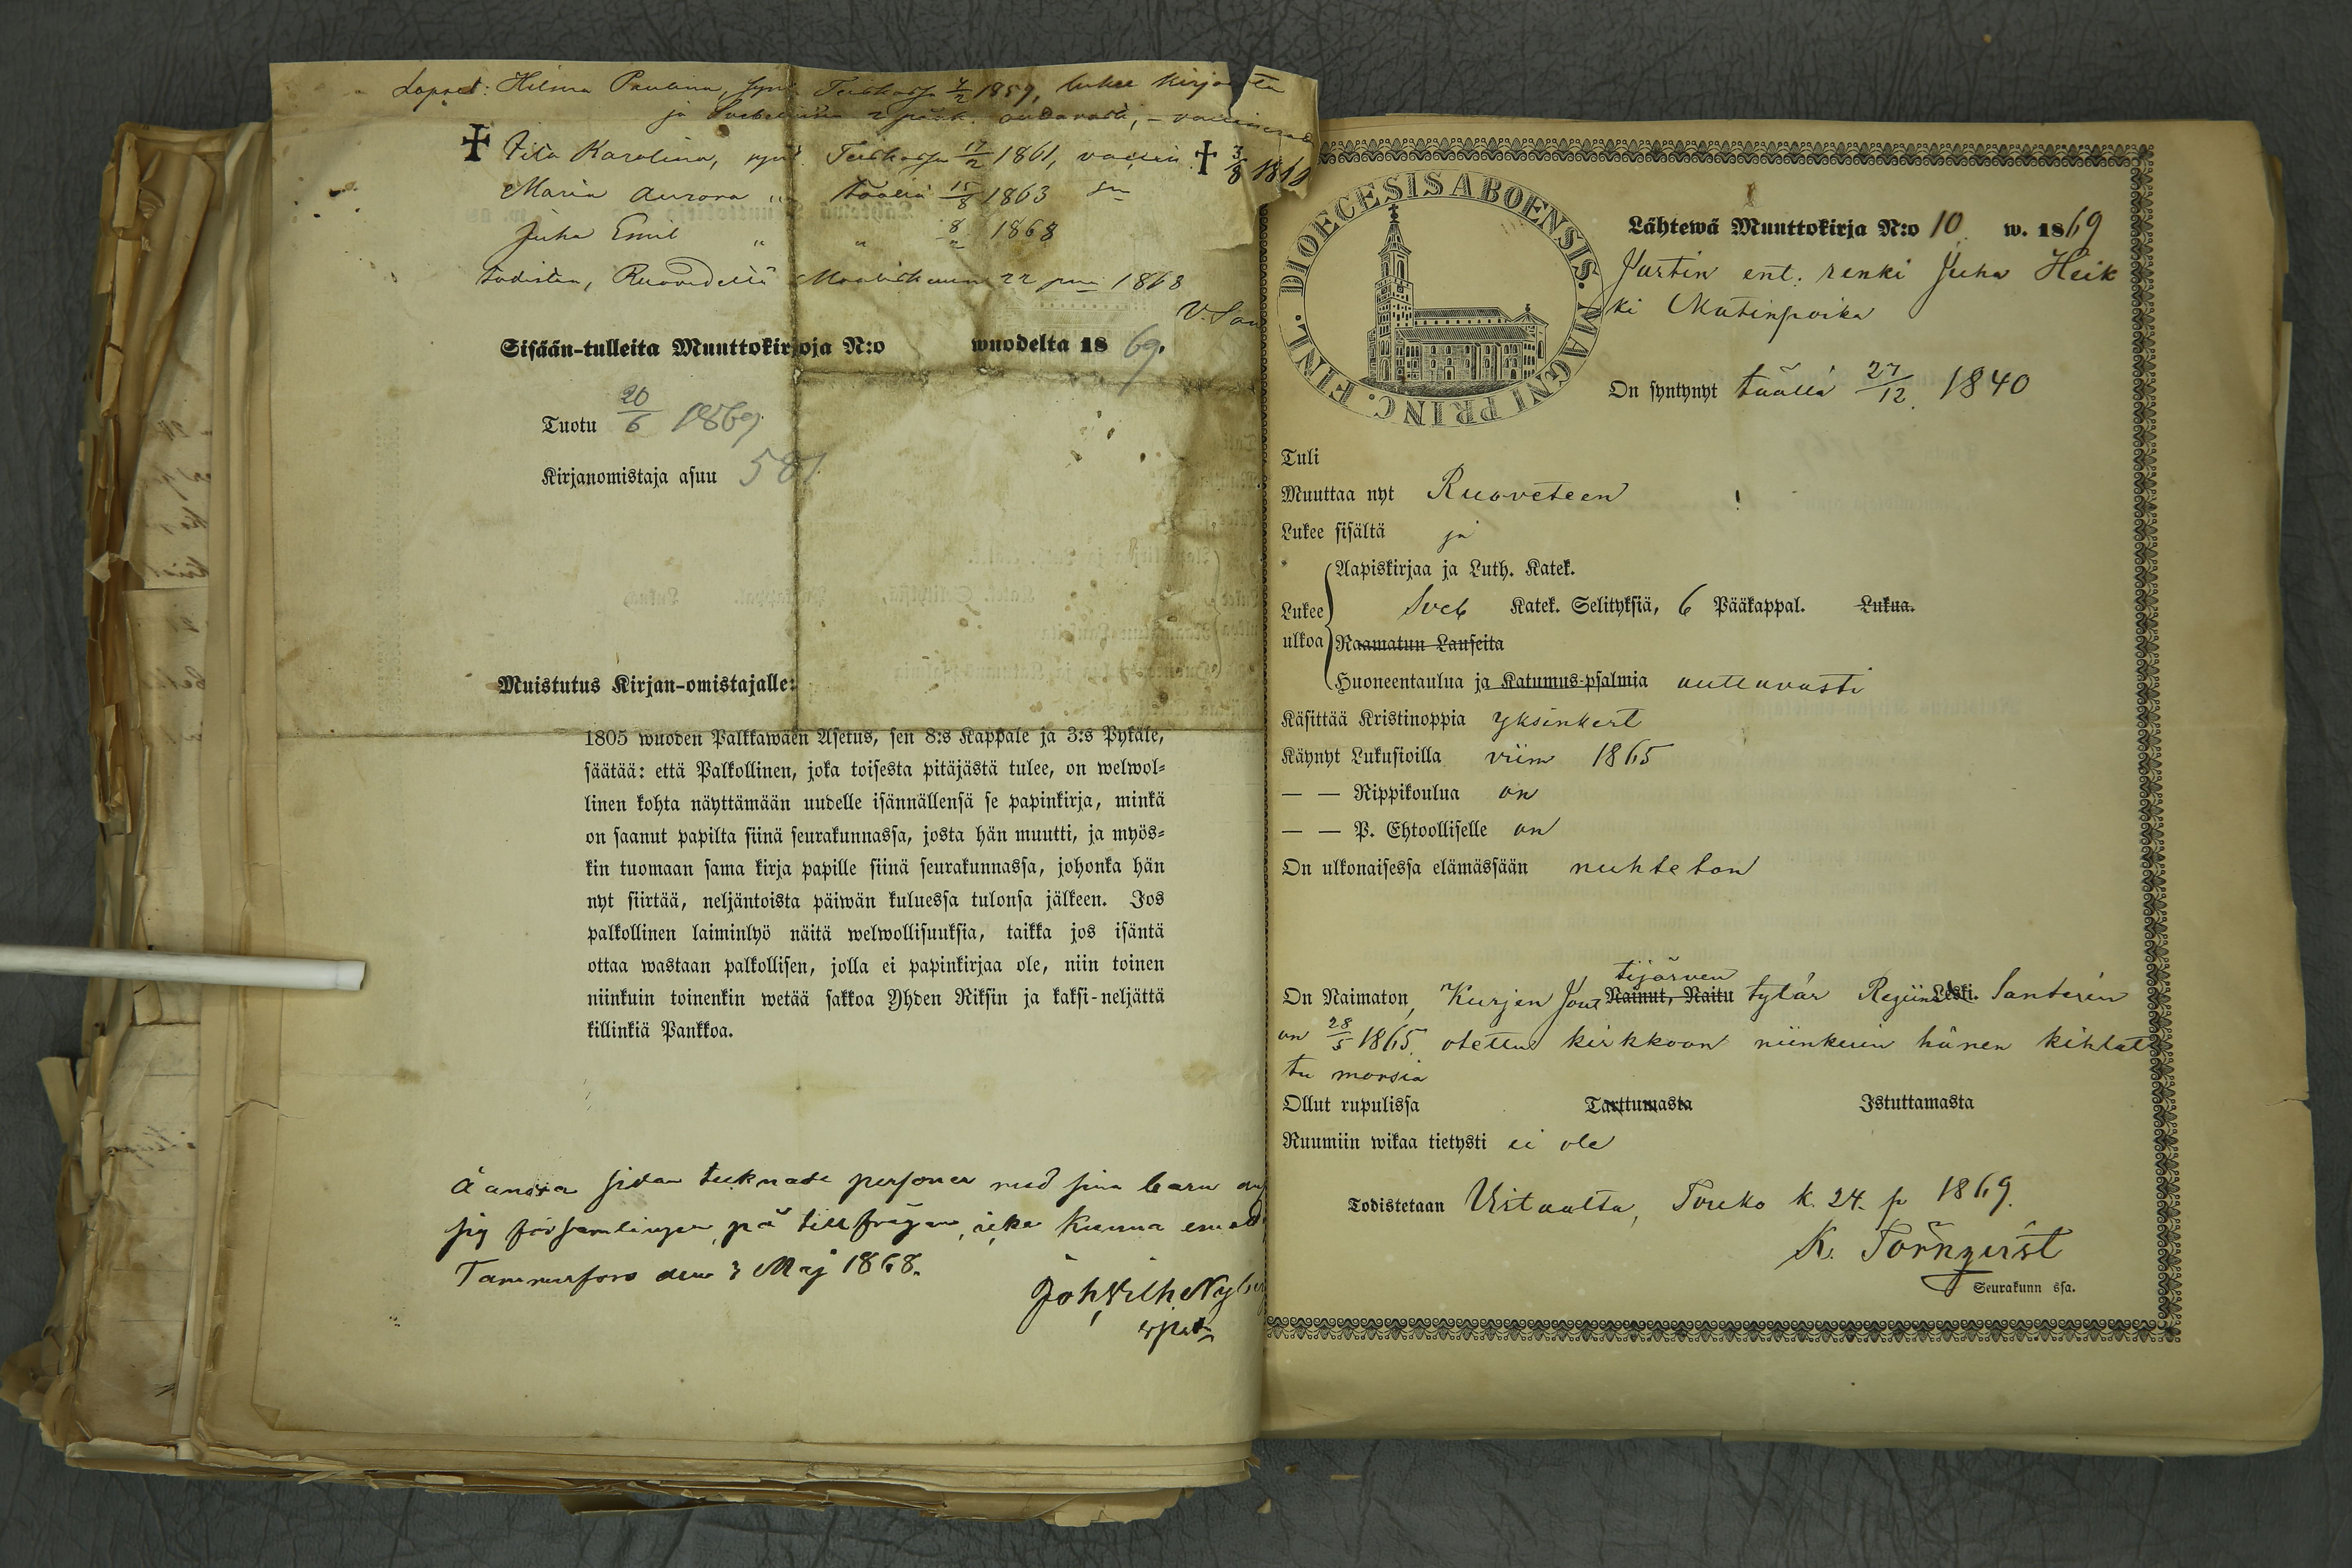 Lapset: Hilma Paulina, synt. Teiskossa 4/2 1859, lukee kirjasta
ja 2 pääk.
Karolina, synt. Teiskossa 17/2 1861, vaccin. 3/8 18
Maria Aurora " täällä 15/8 1863
Juha Emil " " 8/" 1868
todistaa, Ruovedellä Maaliskuun 22 pnä 1868
Sisään-tulleita Muuttokirjoja N:o wuodelta 1869.
Tuotu 20/6 1869
Kirjanomistaja asuu 581
Muistutus Kirjan-omistajalle:
1805 wuoden Palkkawäen Asetus, sen 8:s Kappale ja 3:s Pykäle,
säätää: että Palkollinen, joka toisesta pitäjästä tulee, on welwol-
linen kohta näyttämään uudelle isännällensä se papinkirja, minkä
on saanut papilta siinä seurakunnassa, josta hän muutti, ja myös-
kin tuomaan sama kirja papille siinä seurakunnassa, johonka hän
nyt siirtää, neljäntoista päiwän kuluessa tulonsa jälkeen. Jos
palkollinen laiminlyö näitä welwollisuuksia, taikka jos isäntä
ottaa wastaan palkollisen, jolla ei papinkirjaa ole, niin toinen
niinkuin toinenkin wetää sakkoa Yhden Riksin ja kaksi-neljättä
killinkiä Pankkoa.
Å andra sidan tecknade personer med sina barn
sig församlingen, på tillfrågan, icke kunna
Tammerfors den 3 Maj 1868.
Joh. Vilh. Nyberg
DIOECESIS ABOENSIS. MAGNI PRINC. FINL.
Lähtewä Muuttokirja N:o 10 w. 1869
Justin ent. renki Juha Heik
ki Matinpoika
On syntynyt täällä 27/12 1840
Tuli
Muuttaa nyt Ruoveteen
Lukee sisältä ja
Aapiskirjaa ja Luth. Katek.
Lukee Sveb Katek. Selityksiä, 6 Pääkappal. Lukua.
ulkoa Raamatun Lauseita
Huoneentaulua ja Katumus-psalmia auttavasti
Käsittää Kristinoppia yksinkert
Käynyt Lukusioilla viim 1865
— — Rippikoulua on
— — P. Ehtoolliselle on
On ulkonaisessa elämässään nuhteton
tijärven
On Naimaton, Kurjen Jout Nainut, Naitu tytär Regiina Leski. Santerin
on 28/5 1865 otettu kirkkoon niinkuin hänen kihlat
tu morsia
Ollut rupulissa Tarttumasta Istuttamasta
Ruumiin wikaa tietysti ei ole
Todistetaan Vistaalta, Touko k. 24. p 1869.
K. Törnqvist
Seurakunn ssa.